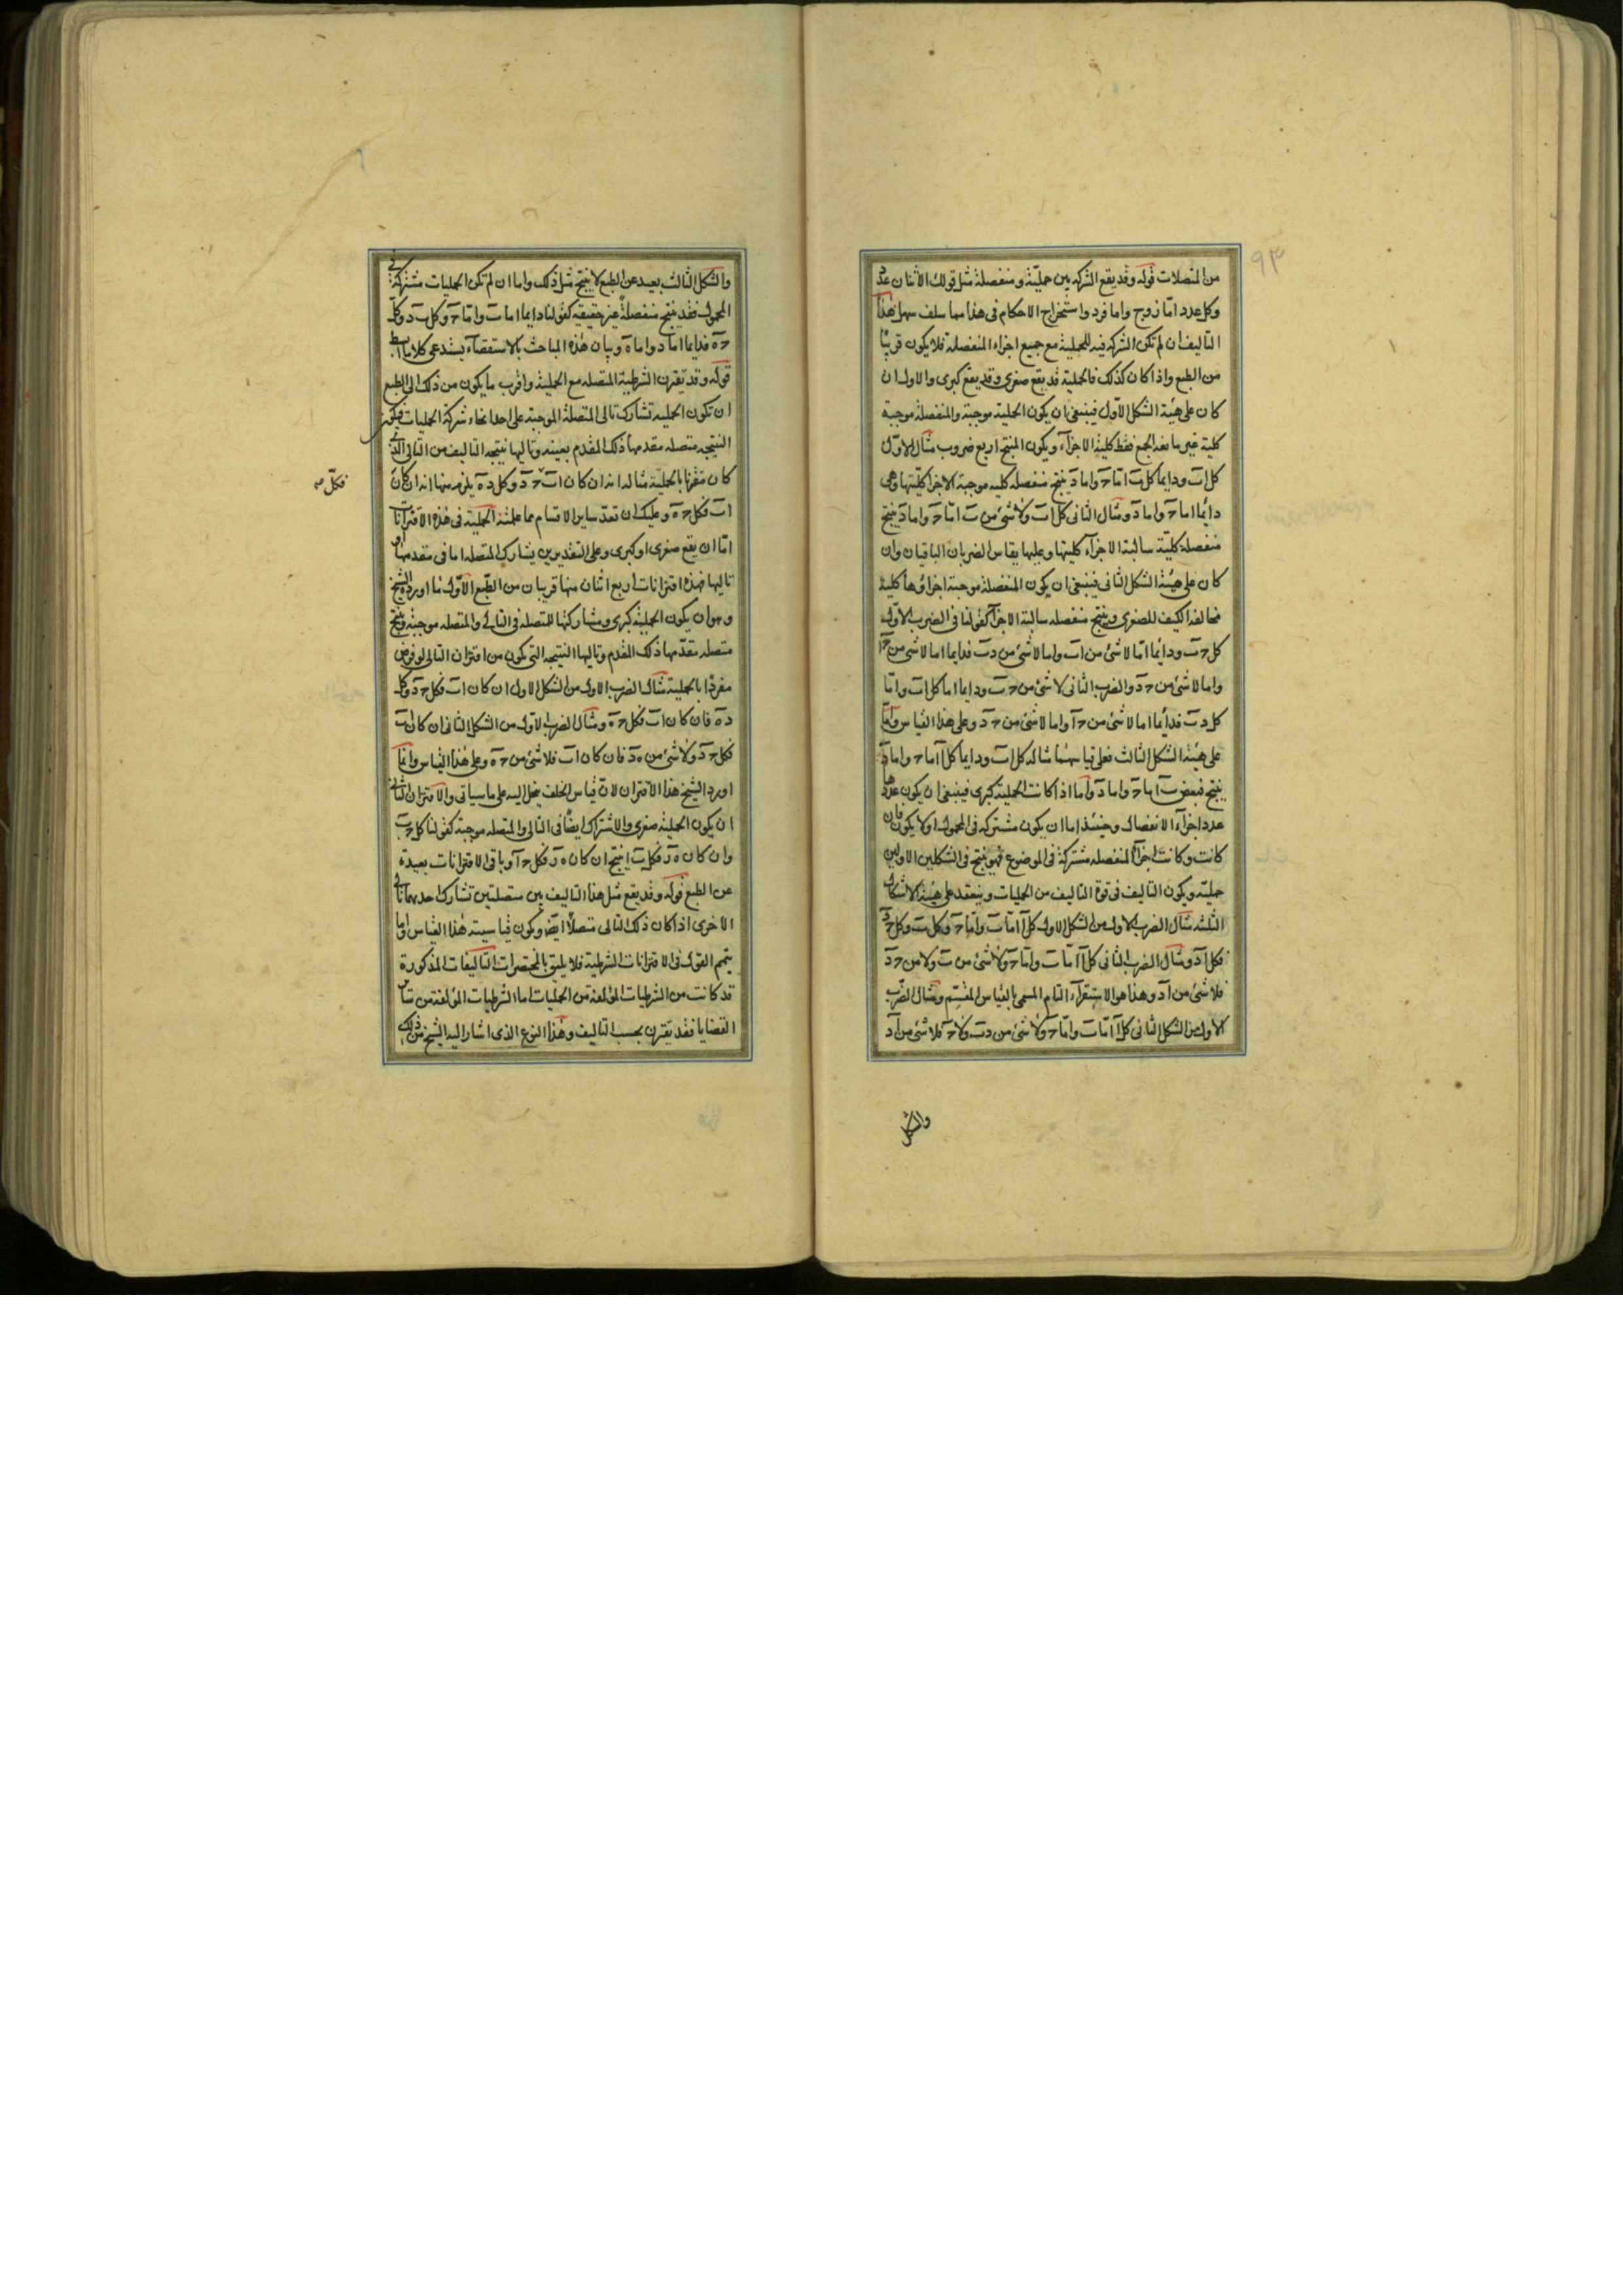 ٩٣
من المتصلات قوله وقد يقع الشركه بين حملية ومنفصلة مثل قولك الاثنان عدد
وكل عدد اما زوج واما فرد واستخراج الاحكام فى هذا مما سلف سهل هذا
التاليف ان لم تكن الشركه فيه للحملية مع جميع اجزاء المنفصله فلا يكون قريبا
من الطبع واذا كان كذلك فالحملية قد يقع صغرى وقد يقع كبرى والاول ان
كان على هيئة الشكل الاول فينبغى ان يكون الحملية موجبة والمنفصلة موجبة
كلية غير مانعة الجمع فقط كلية الاجزاء ويكون المنتج اربع ضروب مثال الاول
كل اب ودايما كل ب اما ج واما د ينتج منفصله كليه موجبة الاجزا كليتها وهى
دائما اما ج واما د ومثال الثانى كل اب ولا شئ من ب اما ج واما د ينتج
منفصله كلية سالبة الاجزاء كليتها وعليها يقاس الضربان الباقيان وان
كان على هيئة الشكل الثانى فينبغى ان يكون المنفصلة موجبة اجزاؤها كلية
مخالفة الكيف للصغرى وينتج منفصله سالبة الاجزا كقولنا فى الضرب الاول
كل ج ب ودائما اما لا شئ من اب واما لا شئ من د ب فدايما اما لا شئ من ج ا
واما لا شئ من ج د والضرب الثانى لا شئ من ج ب ودايما اما كل اب واما
كل د ب فدائما اما لا شئ من ج ا واما لا شئ من ج د وعلى هذا القياس واما
على هيئة الشكل الثالث فعلى قياسهما مثاله كل اب ودايما كل ا اما ج واما د
ينتج فبعض ب اما ج واما د واما اذا كانت الحملية كبرى فينبغى ان يكون عددها
عدد اجزاء الانفصال وحينئذ اما ان يكون مشتركه فى المحمول او لا يكون فان
كانت وكانت اجزاء المنفصله مشتركة فى الموضوع فهو ينتج فى الشكلين الاولين
حملية ويكون التاليف فى قوة التاليف من الحمليات وينعقد على هيئة الاشكال
الثلثه مثال الضرب الاول من الشكل الاول كل ا اما ب واما ج وكل ب د وكل ج د
فكل ا د ومثال الضرب الثانى كل ا اما ب واما ج ولا شئ من ب ولا من ج د
فلا شئ من ا د وهذا هو الاستقراء التام المسمى بالقياس المقسم ومثال الضرب
الاول من الشكل الثانى كل ا اما ب واما ج ولا شئ من د ب ولا ج فلا شئ من ا د
والشكل
والشكل الثالث بعيد عن الطبع لا ينتج مثل ذلك واما ان لم تكن الحمليات مشتركة فى
المحمول فقد ينتج منفصلة غير حقيقيه كقولنا دايما اما ب واما ج وكل ب د وكل
ج ه فدايما اما د واما ه وبيان هذه المباحث بالاستقصاء يستدعى كلاما ابسط
قوله وقد تقترن الشرطية المتصله مع الحملية واقرب ما يكون من ذلك الى الطبع
ان تكون الحمليه تشارك تالى المتصلة الموجبة على احد انحاء شركة الحمليات فيكون
النتيجه متصله مقدمها ذلك المقدم بعينه وتاليها نتيجه التاليف من التالى الذى
كان مقترنا بالحملية مثاله انه ان كان اب ج د وكل د ه يلزم منها انه ان كان
فكل صح
اب فكل ج ه وعليك ان تعد ساير الاقسام مما علمته الحملية فى هذه الاقترانات
اما ان يقع صغرى او كبرى وعلى التقديرين يشارك المتصله اما فى مقدمها او
تاليها فهذه اقترانات اربع اثنان منها قريبان من الطبع الاول ما اورده الشيخ
وهو ان يكون الحملية كبرى ومشاركتها للمتصله فى التالى والمتصله موجبة وينتج
متصله مقدمها ذلك المقدم وتاليها النتيجه التى يكون من اقتران التالى لو فرض
مفردا بالحملية مثال الضرب الاول من الشكل الاول ان كان اب فكل ج د وكل
د ه فان كان اب فكل ج ه ومثال الضرب الاول من الشكل الثانى ان كان اب
فكل ج د ولا شئ من ه د فان كان اب فلا شئ من ج ه وعلى هذا القياس وانما
اورد الشيخ هذا الاقتران لان قياس الخلف ينحل اليه على ما سياتى والاقتران الثانى
ان يكون الحملية صغرى والاشتراك ايضا فى التالى والمتصله موجبة كقولنا كل ج ب
وان كان ه ز فكل ب ا ينتج ان كان ه ز فكل ج ا وباقى الاقترانات بعيدة
عن الطبع قوله وقد يقع مثل هذا التاليف بين متصلتين تشارك احديهما تالى
الاخرى اذا كان ذلك التالى متصلا ايضا ويكون قياسيته هذا القياس واما
تتميم القول فى الاقترانات الشرطية فلا يليق بالمختصرات التاليفات المذكورة
قد كانت من الشرطيات المؤلفة من الحمليات اما الشرطيات المؤلفة من ساير
القضايا فقد يقترن بحسب التاليف وهذا النوع الذى اشار اليه الشيخ من ذلك